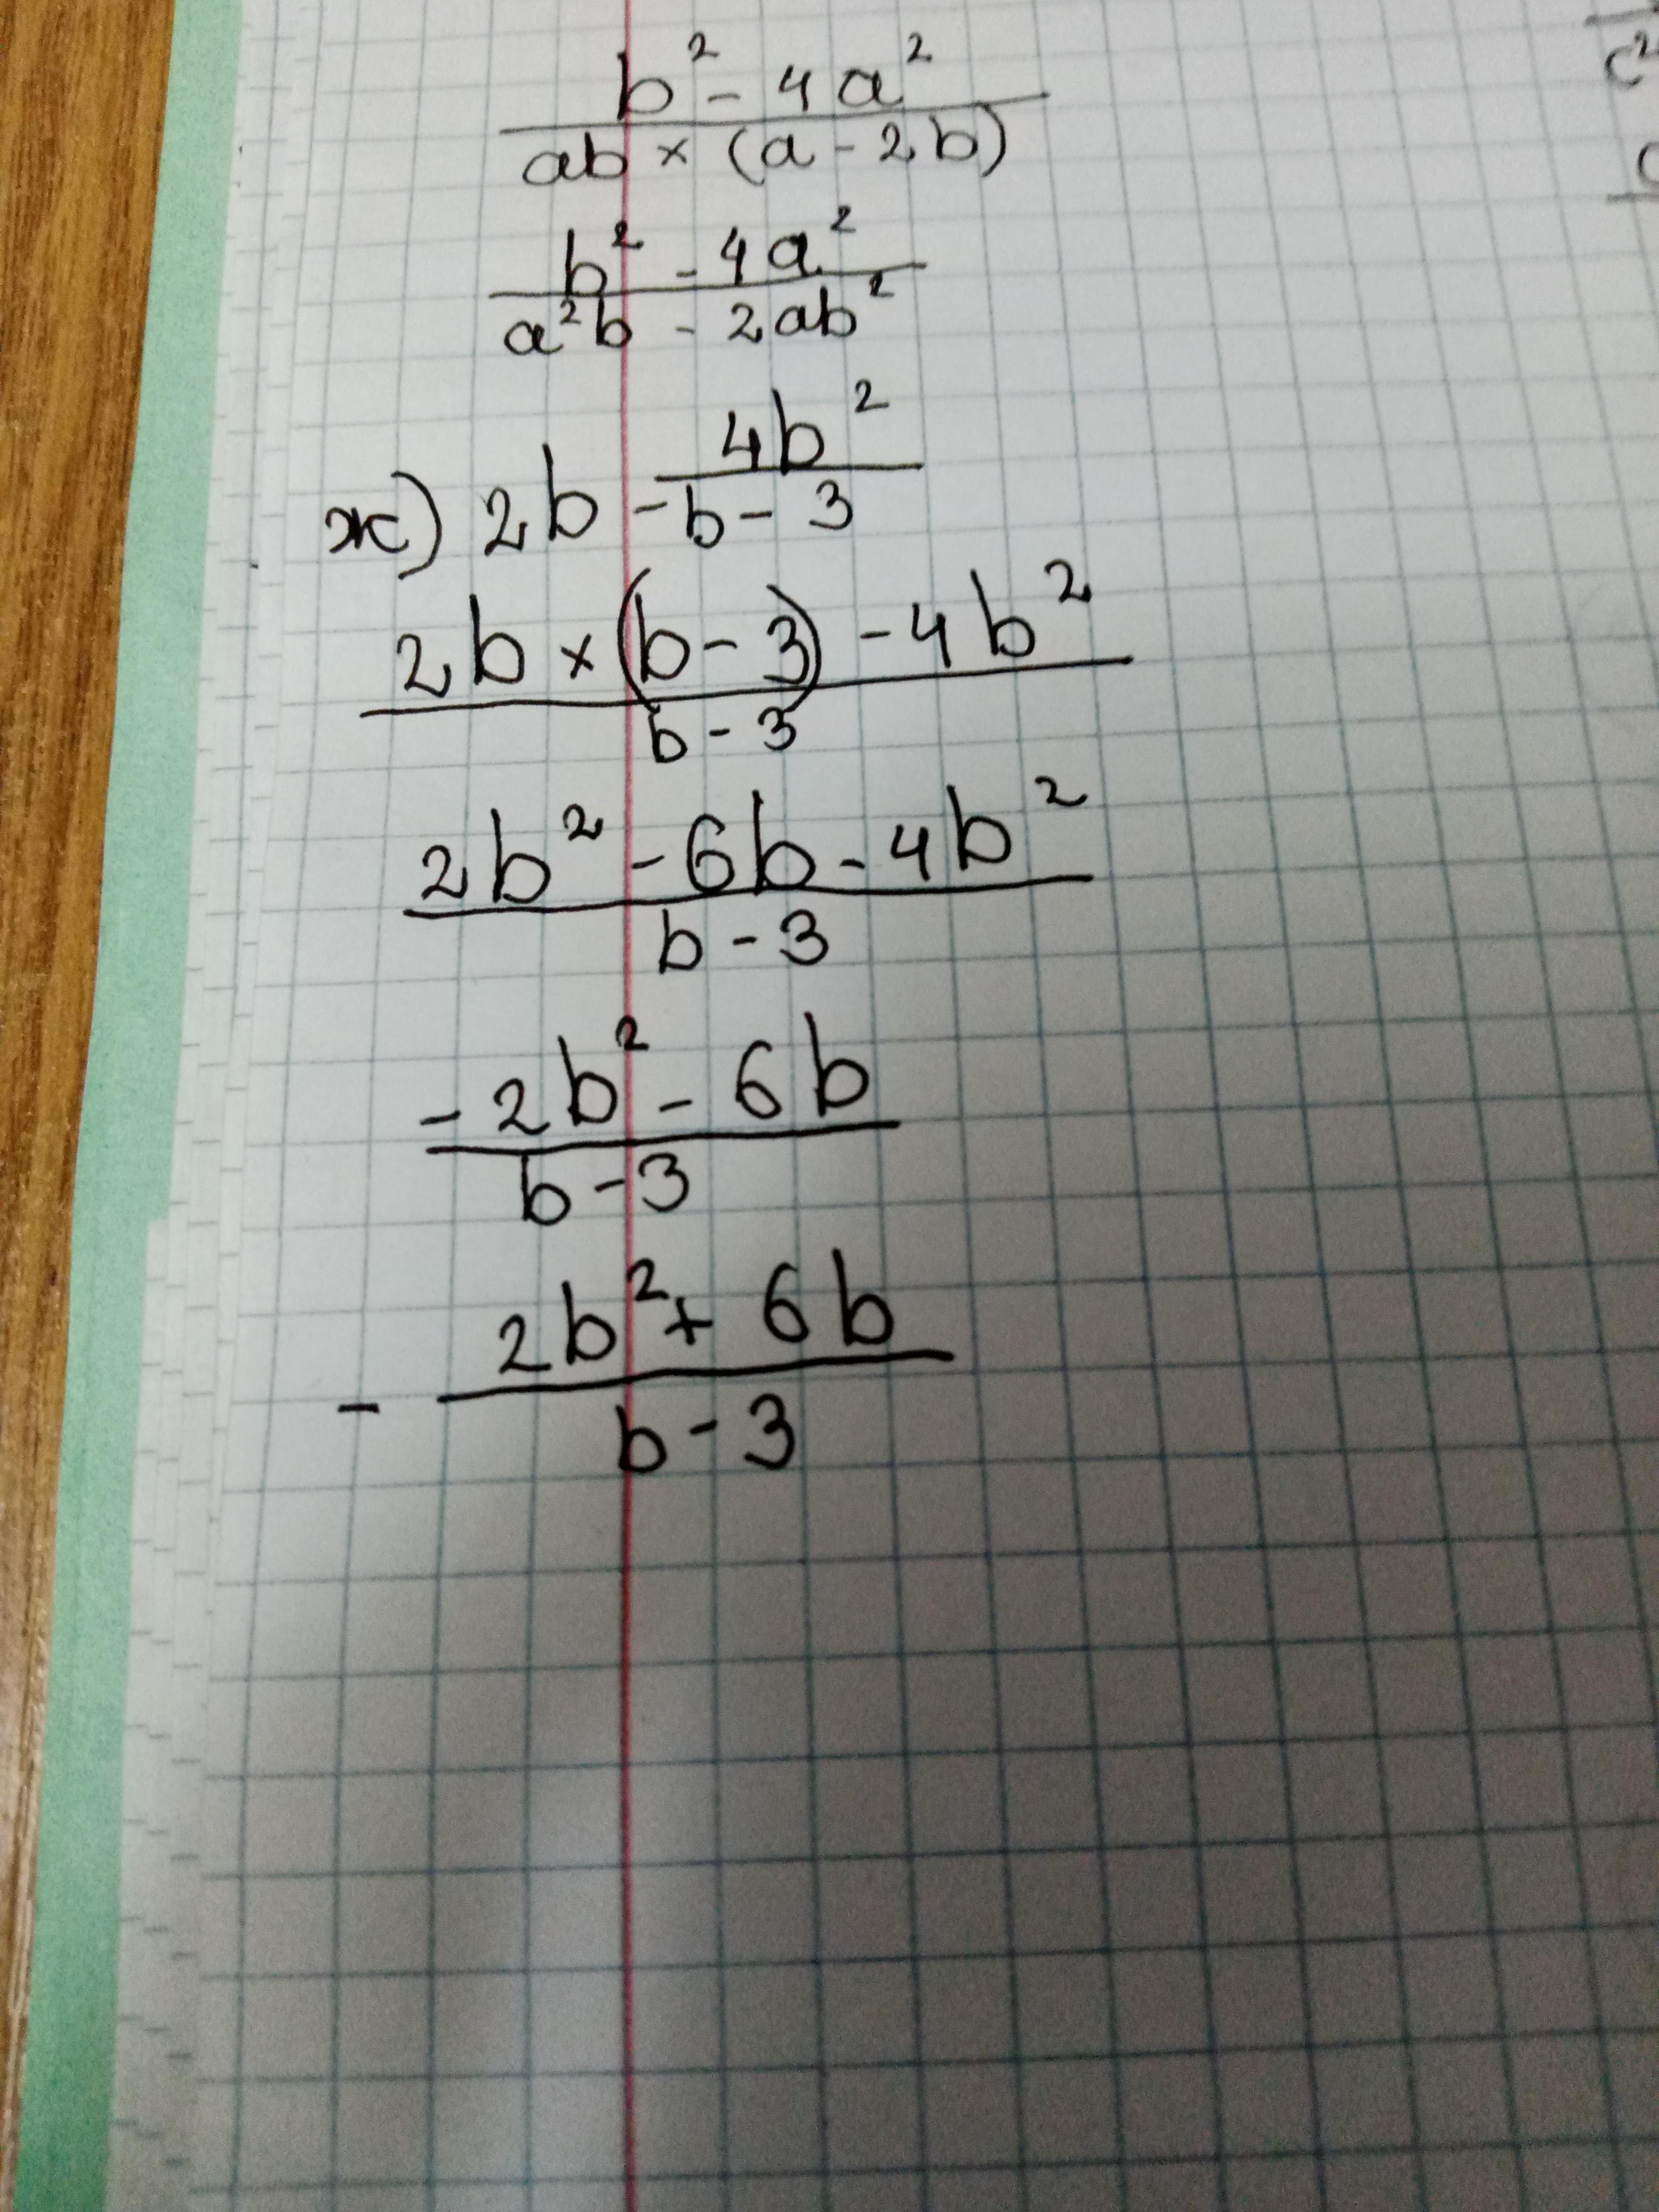 b² - 4a²
ab × (a - 2b)
b² - 4a²
a²b - 2ab²
4b²
ж) 2b - b - 3
2b × (b - 3) - 4b²
b - 3
2b² - 6b - 4b²
b - 3
- 2b² - 6b
b - 3
2b² + 6b
-
b - 3
c²